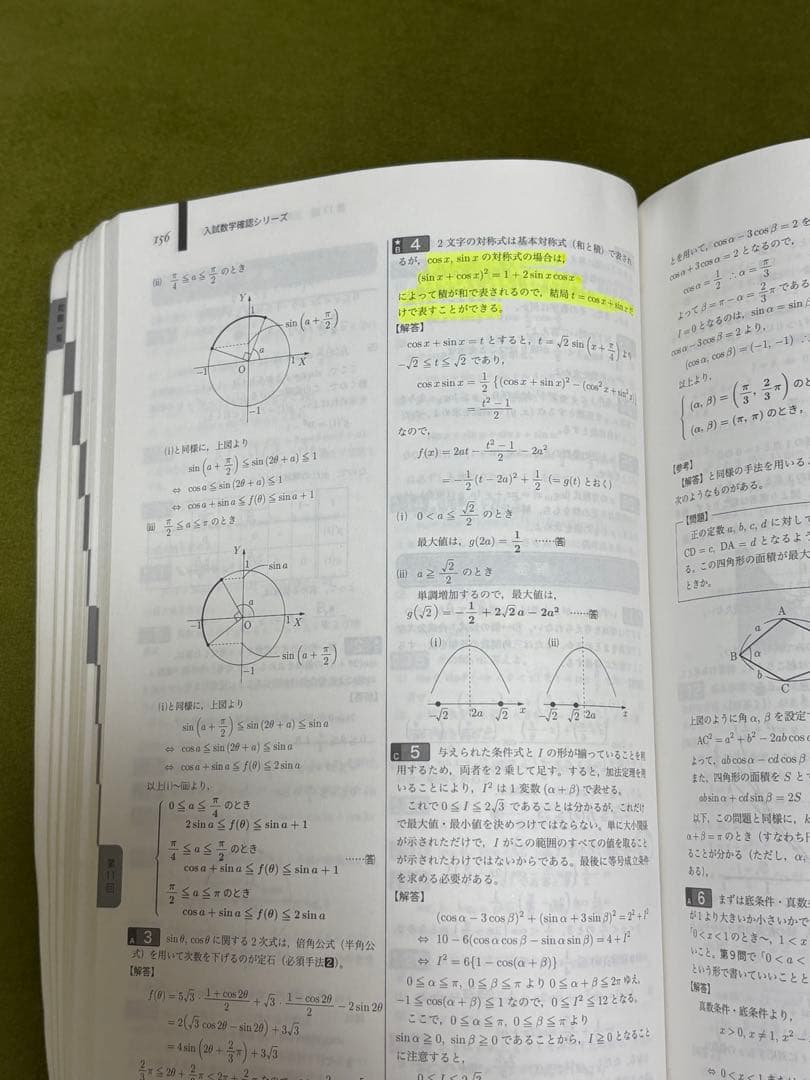 156
入試数学確認シリーズ
(ii) π/4 ≦ a ≦ π/2 のとき
Y
1
sin(a+π/2)
a
−1
O
1
X
−1
(i)と同様に，上図より
sin(a+π/2) ≦ sin(2θ+a) ≦ 1
⇔ cos a ≦ sin(2θ+a) ≦ 1
⇔ cos a+sin a ≦ f(θ) ≦ sin a+1
(iii) π/2 ≦ a ≦ π のとき
Y
1
sin a
a
−1
O
1
X
−1
sin(a+π/2)
(i)と同様に，上図より
sin(a+π/2) ≦ sin(2θ+a) ≦ sin a
⇔ cos a ≦ sin(2θ+a) ≦ sin a
⇔ cos a+sin a ≦ f(θ) ≦ 2 sin a
以上(i)〜(iii)より，
0 ≦ a ≦ π/4 のとき
2 sin a ≦ f(θ) ≦ sin a+1
π/4 ≦ a ≦ π/2 のとき
cos a+sin a ≦ f(θ) ≦ sin a+1
……答
π/2 ≦ a ≦ π のとき
cos a+sin a ≦ f(θ) ≦ 2 sin a
第11回
A 3 sin θ, cos θ に関する2次式は，倍角公式（半角公
式）を用いて次数を下げるのが定石（必須手法2）。
【解答】
f(θ)=5√3・(1+cos 2θ)/2+√3・(1−cos 2θ)/2−2 sin 2θ
=2(√3 cos 2θ−sin 2θ)+3√3
=4 sin(2θ+2/3π)+3√3
★B 4 2文字の対称式は基本対称式（和と積）で表され
るが，cos x, sin x の対称式の場合は，
(sin x+cos x)²=1+2 sin x cos x
によって積が和で表されるので，結局 t=cos x+sin x だ
けで表すことができる。
【解答】
cos x+sin x=t とすると，t=√2 sin(x+π/4) より
−√2 ≦ t ≦ √2 であり，
cos x sin x=1/2{(cos x+sin x)²−(cos² x+sin² x)}
=(t²−1)/2
なので，
f(x)=2at−(t²−1)/2−2a²
=−1/2(t−2a)²+1/2 (=g(t) とおく)
(i) 0<a≦√2/2 のとき
最大値は，g(2a)=1/2 ……答
(ii) a≧√2/2 のとき
単調増加するので，最大値は，
g(√2)=−1/2+2√2a−2a² ……答
(i)
−√2 2a √2 x
(ii)
−√2 √2 2a x
C 5 与えられた条件式と I の形が揃っていることを利
用するため，両者を2乗して足す。すると，加法定理を用
いることにより，I² は1変数 (α+β) で表せる。
これで 0≦I≦2√3 であることは分かるが，これだけ
で最大値・最小値を決めつけてはならない。単に大小関係
が示されただけで，I がこの範囲のすべての値を取ること
が示されたわけではないからである。最後に等号成立条件
を求める必要がある。
【解答】
(cos α−3 cos β)²+(sin α+3 sin β)²=2²+I²
⇔ 10−6(cos α cos β−sin α sin β)=4+I²
⇔ I²=6{1−cos(α+β)}
0≦α≦π, 0≦β≦π より 0≦α+β≦2π ゆえ，
−1≦cos(α+β)≦1 なので，0≦I²≦12 となる。
ここで，0≦α≦π, 0≦β≦π より
sin α≧0, sin β≧0 であることから，I≧0 となること
に注意すると，
とを用いて，cos α−3 cos β=2 を
cos α+3 cos α=2 となるので，
cos α=1/2 ∴ α=π/3
よって β=π−α=2/3 π である
I=0 となるのは，sin α=sin
cos α−3 cos β=2 より，
(cos α, cos β)=(−1, −1) ∴
以上より，
(α, β)=(π/3, 2/3 π) のと
(α, β)=(π, π) のとき
【参考】
【解答】と同様の手法を用いる
次のようなものがある。
【問題】
正の定数 a, b, c, d に対して
CD=c, DA=d となるよう
る。この四角形の面積が最大
ときか。
A
a
B
α
b
C
上図のように角 α, β を設定す
AC²=a²+b²−2ab cos α
よって，ab cos α−cd cos β=
また，四角形の面積を S と
ab sin α+cd sin β=2S
以下，この問題と同様に，
α+β=π のとき（すなわち
ることが分かる（ただし，α,
ある）。
A 6 まずは底条件・真数
が1より大きいか小さいかで
「0<x<1のとき〜，1<x
いこと。第9問で「0<a<
という形で書いていいことと
【解答】
真数条件・底条件より，
x>0, x≠1, x²−
⇔ 0<x<1 また